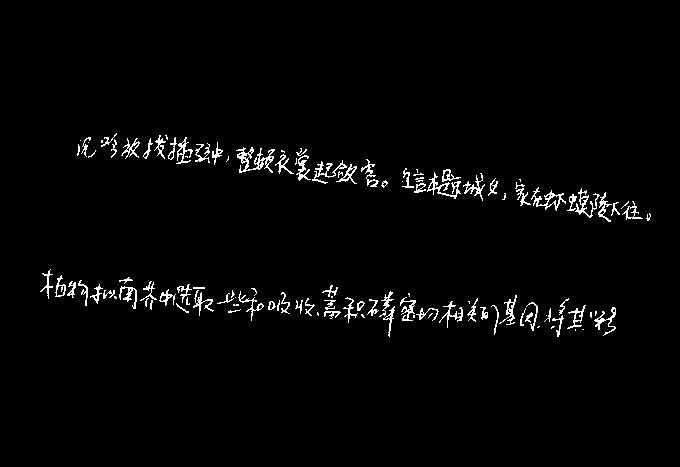 沉吟放拨插弦中，整顿衣裳起敛容。自言本是京城女，家在虾蟆陵下住。
植物拟南芥中选取一些和吸收、蓄积磷密切相关的基因，将其